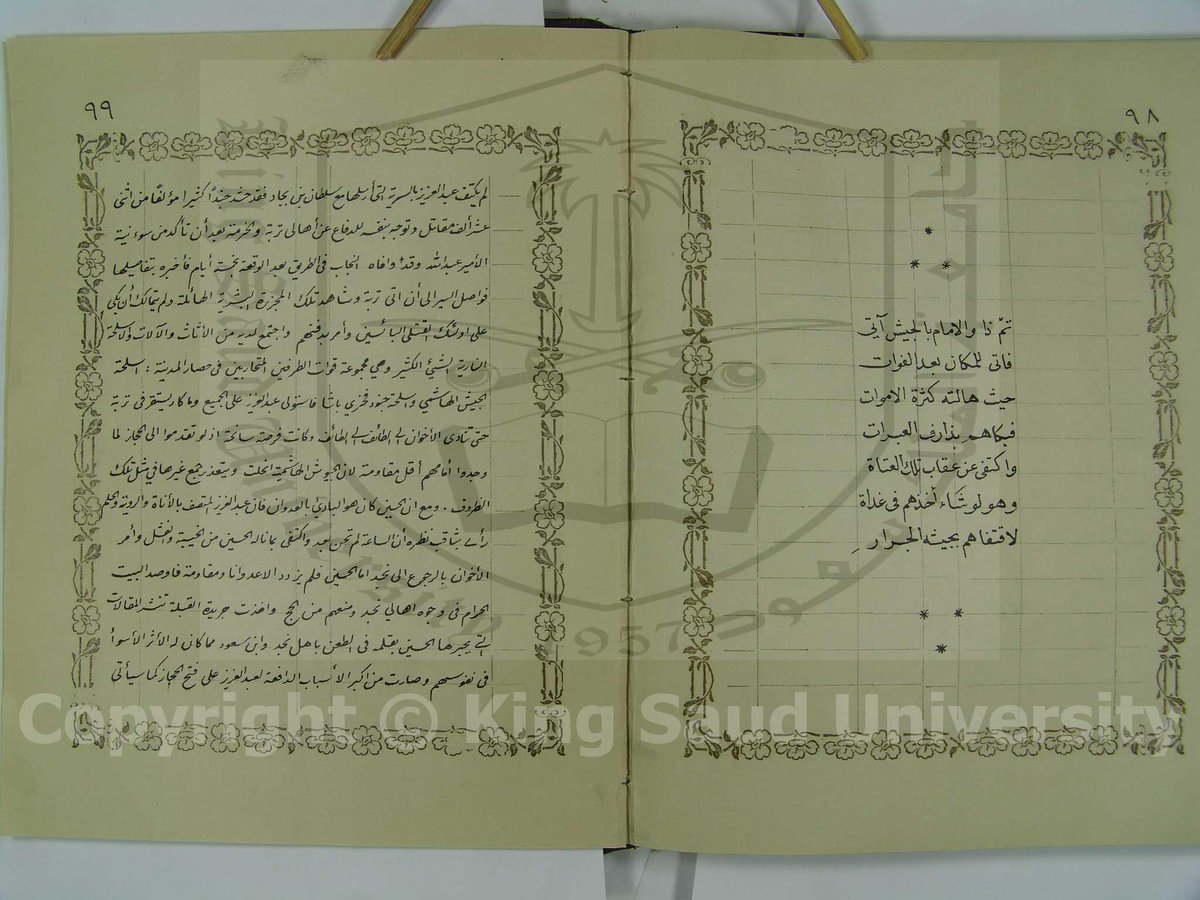 ٩٨
تمّ ذا والامام بالجيش آتي
فاتى للمكان بعد الفوات
حيث هالته كثرة الاموات
فبكاهم بذارف العبرات
واكتفى عن عقاب تلك العتاة
وهو لو شاء لأخذهم فى غداة
لاقتفاهم بجيشه الجرار
٩٩
لم يكتف عبد العزيز بالسرية التى أرسلها مع سلطان بن بجاد فقد حشد جنداً كثيرا مؤلفا من اثنى
عشر ألف مقاتل وتوجه بنفسه للدفاع عن أهالى تربة والخرمة بعد أن تأكد من سوء نية
الأمير عبد الله وقد وافاه النجاب فى الطريق بعد الوقعة بخمسة أيام فأخبره بتفاصيلها
فواصل السير الى أن اتى تربة وشاهد تلك المجزرة البشرية الهائلة ولم يتمالك أن بكى
على اولئك القتلى البائسين وأمر بدفنهم واجتمع لديه من الأثاث والآلات والاسلحة
النارية الشيئ الكثير وهي مجموعة قوات الطرفين المتحاربين فى حصار المدينة : اسلحة
الجيش الهاشمي واسلحة جنود فخري باشا فاستولى عبد العزيز على الجميع وما كاد يستقر فى تربة
حتى تنادى الأخوان الى الطائف الى الطائف وكانت فرصة سانحة اذ لو تقدموا الى الحجاز لما
وجدوا أمامهم أقل مقاومة لان الجيوش الهاشمية انحلت ويتعذر جمع غيرها في مثل تلك
الظروف . ومع ان الحسين كان هو البادئ بالعدوان فان عبد العزيز المتصف بالأناة والروية والحلم
رأى بثاقب نظره أن الساعة لم تحن بعد واكتفى بما ناله الحسين من الخيبة والفشل وأمر
الأخوان بالرجوع الى نجد اما الحسين فلم يزدد الا عدوانا ومقاومة فاوصد البيت
الحرام فى وجوه اهالي نجد ومنعهم من الحج واخذت جريدة القبلة تنشر المقالات
التي يحبرها الحسين بقلمه فى الطعن باهل نجد وابن سعود مما كان له الأثر الأسوأ
فى نفوسهم وصارت من اكبر الأسباب الدافعة لعبد العزيز على فتح الحجاز كما سيأتى
1957
Copyright © King Saud University